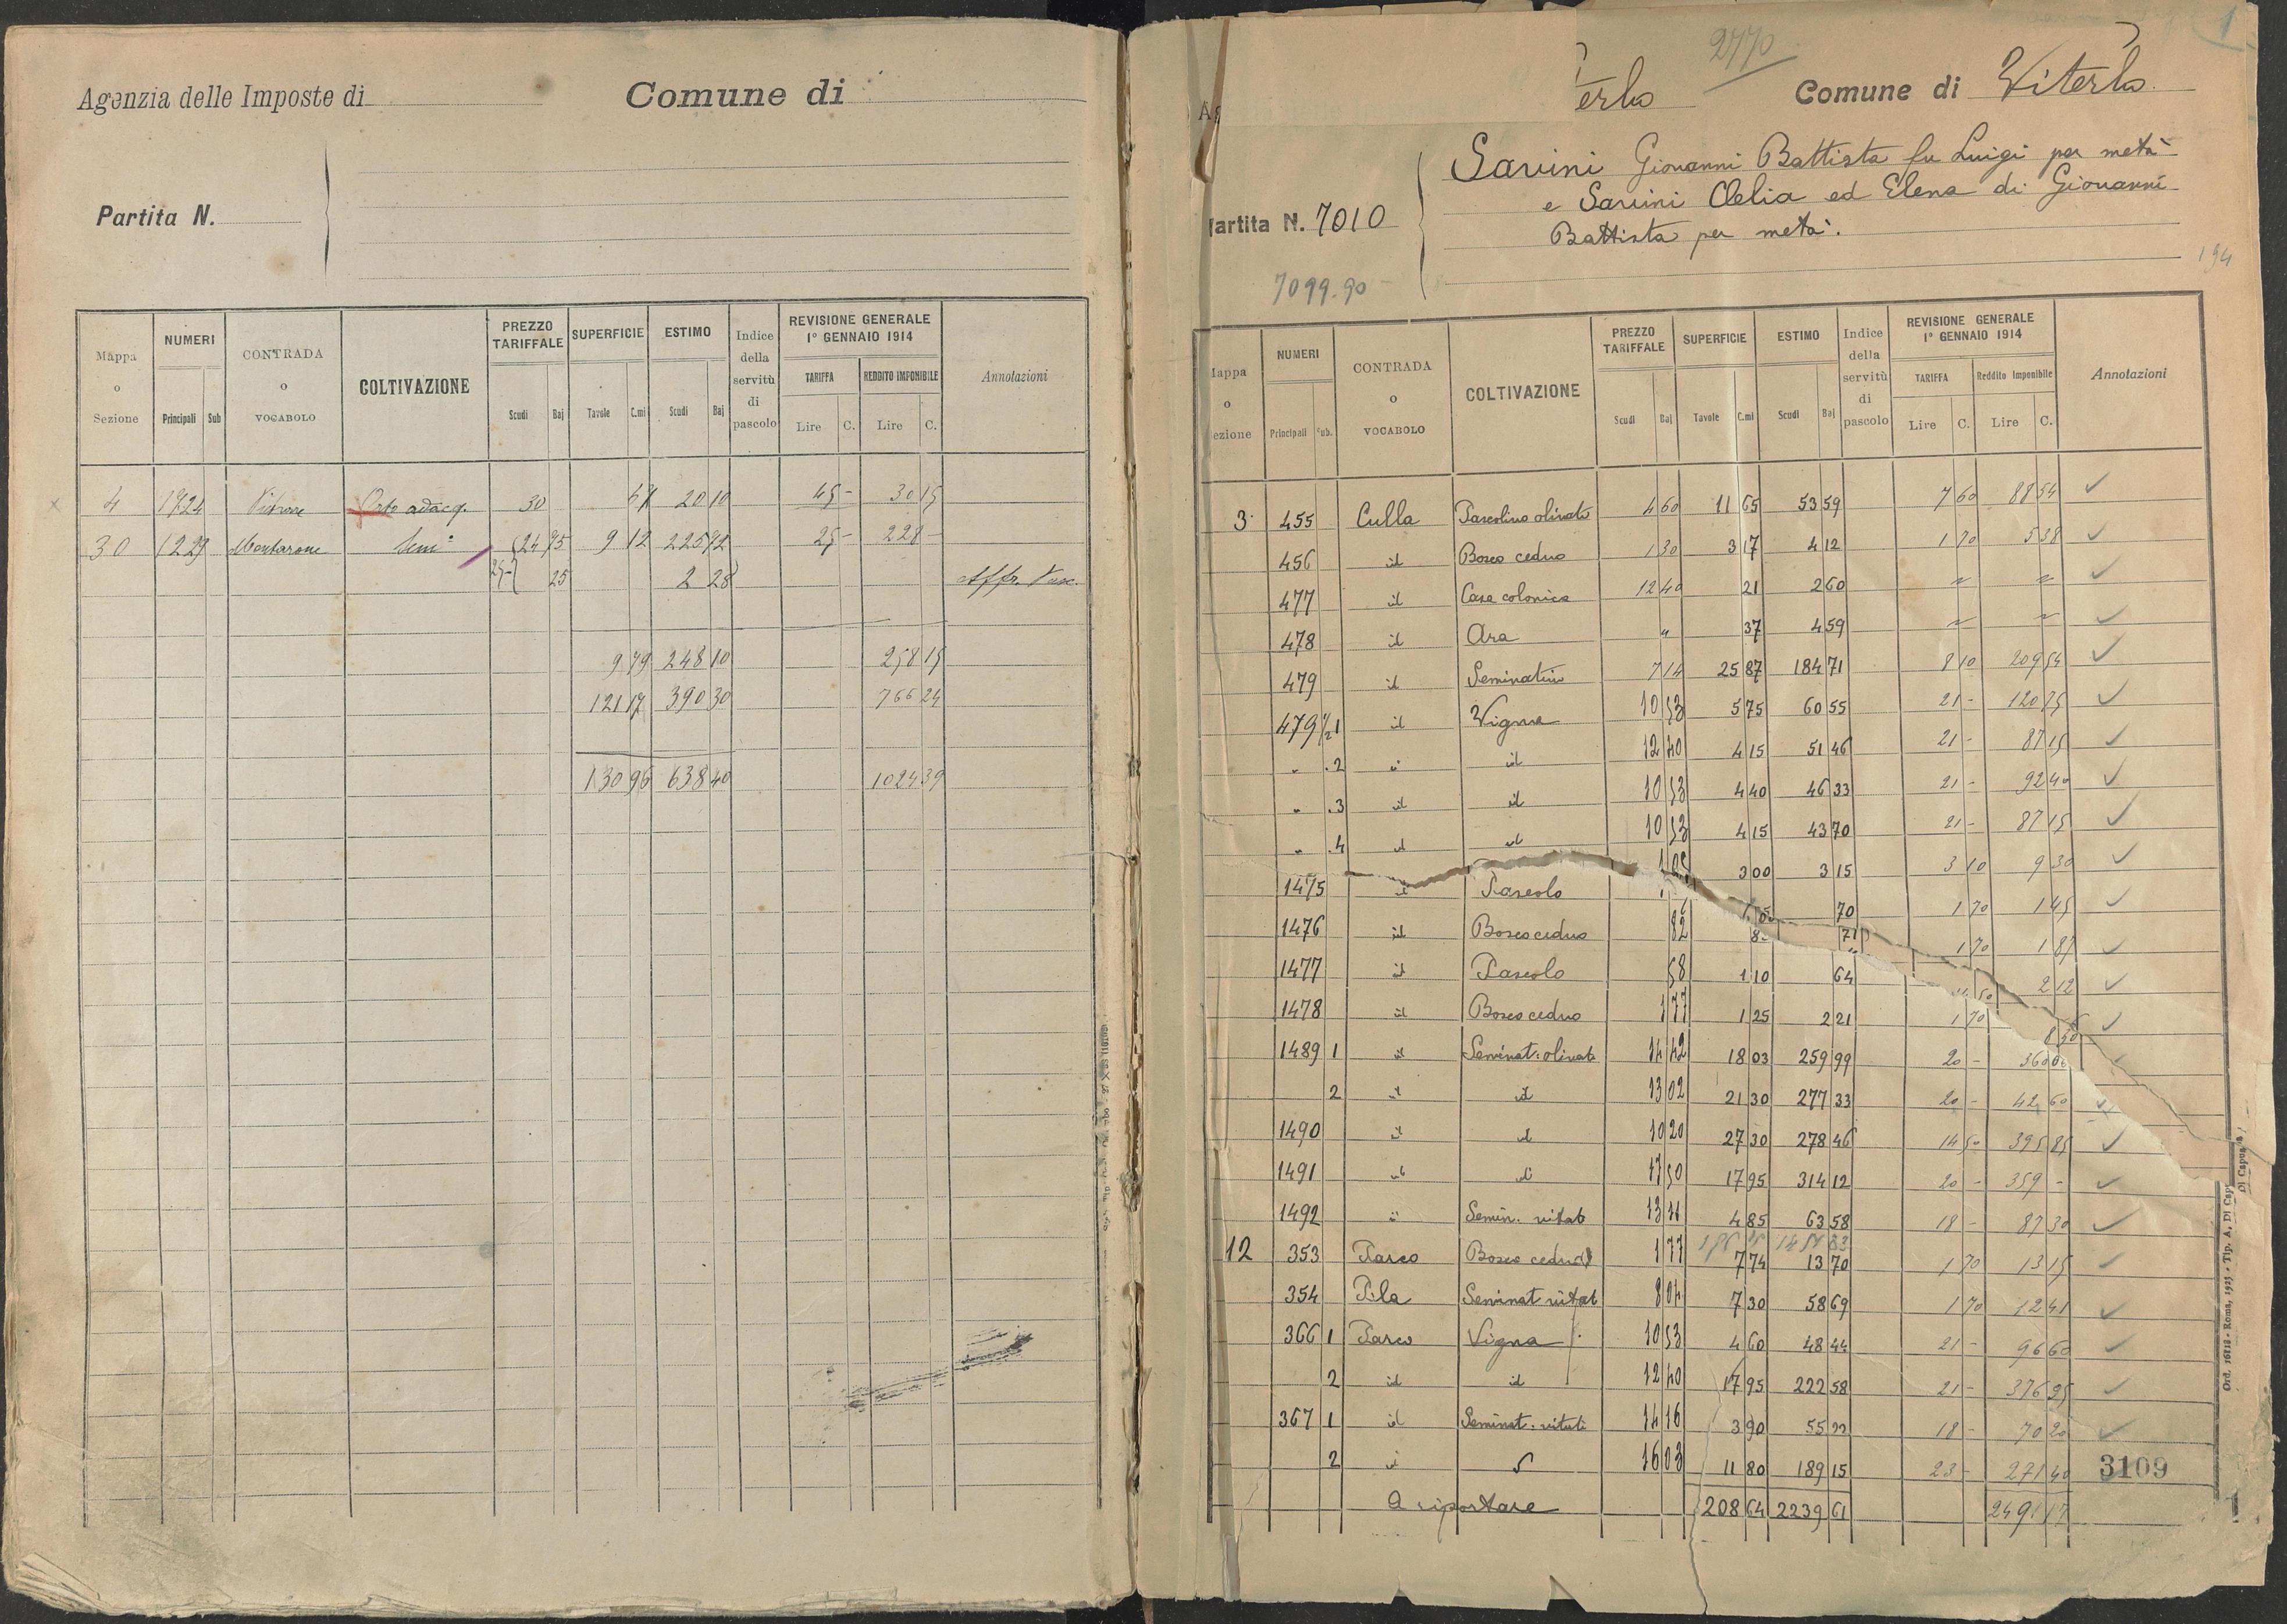 Agenzia delle Imposte di
Comune di
Partita N.
Mappa o Sezione
NUMERI
Principali Sub
CONTRADA o VOCABOLO
COLTIVAZIONE
PREZZO TARIFFALE
Scudi Baj
SUPERFICIE
Tavole C.mi
ESTIMO
Scudi Baj
Indice della servitù di pascolo
REVISIONE GENERALE 1° GENNAIO 1914
TARIFFA
Lire C.
REDDITO IMPONIBILE
Lire C.
Annotazioni
4 1724 Orto adacq. 30 67 20 10 45 - 30 15
30 1229 Montarone Sem: 24 95 9 12 225 92 25 - 228 -
25 2 28
9 79 248 10 258 15
121 17 390 30 766 24
130 96 638 40 1024 39
1
2770
erbo
Comune di Viterbo
artita N. 7010
Savini Giovanni Battista fu Luigi per metà
e Savini Clelia ed Elena di Giovanni
Battista per metà.
194
7099.90
appa o ezione
NUMERI
Principali Sub.
CONTRADA o VOCABOLO
COLTIVAZIONE
PREZZO TARIFFALE
Scudi Baj
SUPERFICIE
Tavole C.mi
ESTIMO
Scudi Baj
Indice della servitù di pascolo
REVISIONE GENERALE 1° GENNAIO 1914
TARIFFA
Lire C.
Reddito Imponibile
Lire C.
Annotazioni
3 455 Culla Pascolivo olivato 4 60 11 65 53 59 7 60 88 54
456 id Bosco ceduo 1 30 3 17 4 12 1 70 5 38
477 id Casa colonica 12 40 21 2 60 " "
478 id Ara " 37 4 59 " "
479 id Seminativo 7 14 25 87 184 71 8 10 209 54
479 1/2 1 id Vigna 10 53 5 75 60 55 21 - 120 75
" 2 " id 12 40 4 15 51 46 21 - 87 15
" 3 id id 10 53 4 40 46 33 21 - 92 40
" 4 id id 10 53 4 15 43 70 21 - 87 15
1475 id Pascolo 1 05 3 00 3 15 3 10 9 30
1476 id Bosco ceduo 82 70 1 70 1 45
1477 id Pascolo 58 1 10 64 1 70 1 87
1478 id Bosco ceduo 1 77 1 25 2 21 1 70 2 12
1489 1 id Seminat: olivato 14 42 18 03 259 99 20 - 360 60
2 id id 13 02 21 30 277 33 20 - 42 60
1490 id id 10 20 27 30 278 46 14 50 395 85
1491 id id 17 50 17 95 314 12 20 - 359 -
1492 id Semin. vitato 13 11 4 85 63 58 18 - 87 30
12 353 Parco Bosco ceduo 1 77 7 74 13 70 1 70 13 15
354 Pila Seminat vitato 8 04 7 30 58 69 1 70 12 41
366 1 Parco Vigna 10 53 4 60 48 44 21 - 96 60
2 id id 12 40 17 95 222 58 21 - 376 95
367 1 id Seminat: vitato 14 16 3 90 55 22 18 - 70 20
2 id 16 03 11 80 189 15 23 - 271 40
3109
A riportare 208 64 2239 61 2491 17
Ord. 16118 - Roma, 1925 - Tip. A. Di Cap
Di Capua